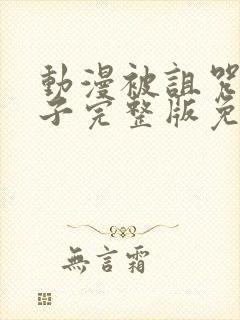 動漫被詛咒
子完整版免
無言霜